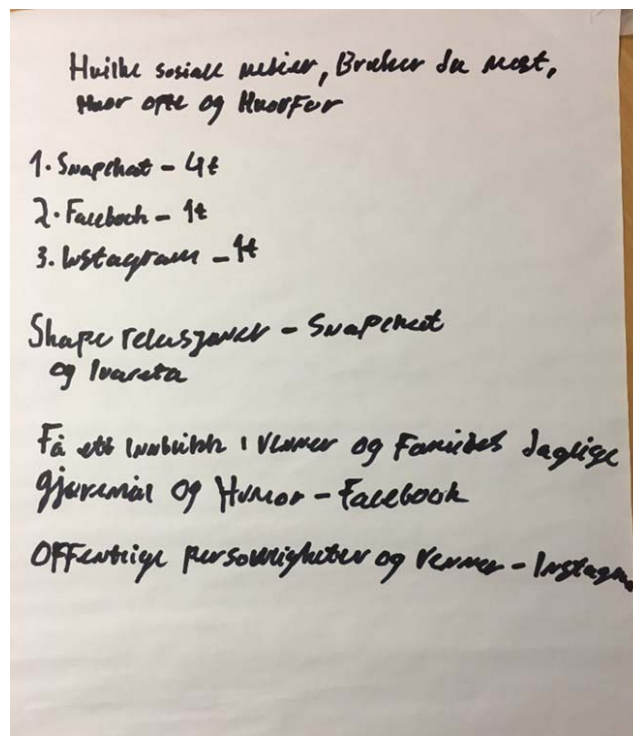 Hvilke sosiale medier, Bruker du mest,
Hvor ofte og Hvorfor
1. Snapchat - 4t
2. Facebook - 1t
3. Instagram - 1t
Skape relasjoner - Snapchat
og Ivareta
Få ett Innblikk i venner og Families daglige
gjøremål og Humor - Facebook
Offentlige personligheter og venner - Instagram